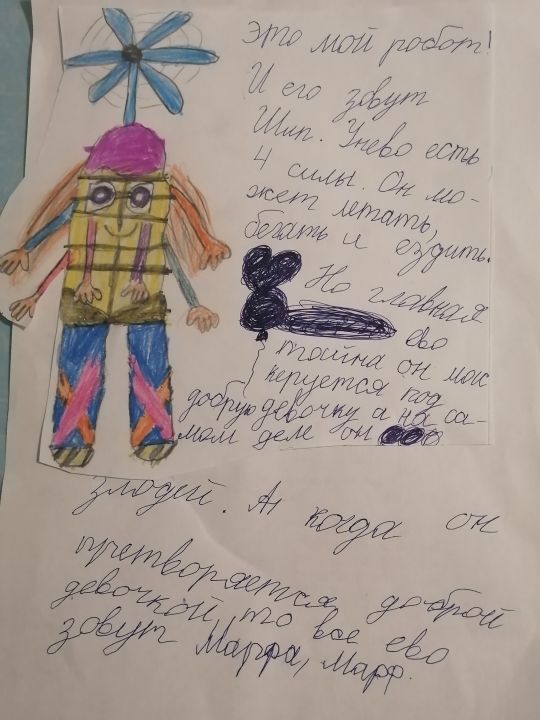 Это мой робот!
И его зовут
Шип. Унево есть
4 силы. Он мо-
жет летать,
бегать и ездить.
Но главная
ево
тайна он мас
керуется под
добрую девочку а на са-
мом деле он
злодей. А когда он
претворяется доброй
девочкой, то все ево
зовут Марфа, Марф.